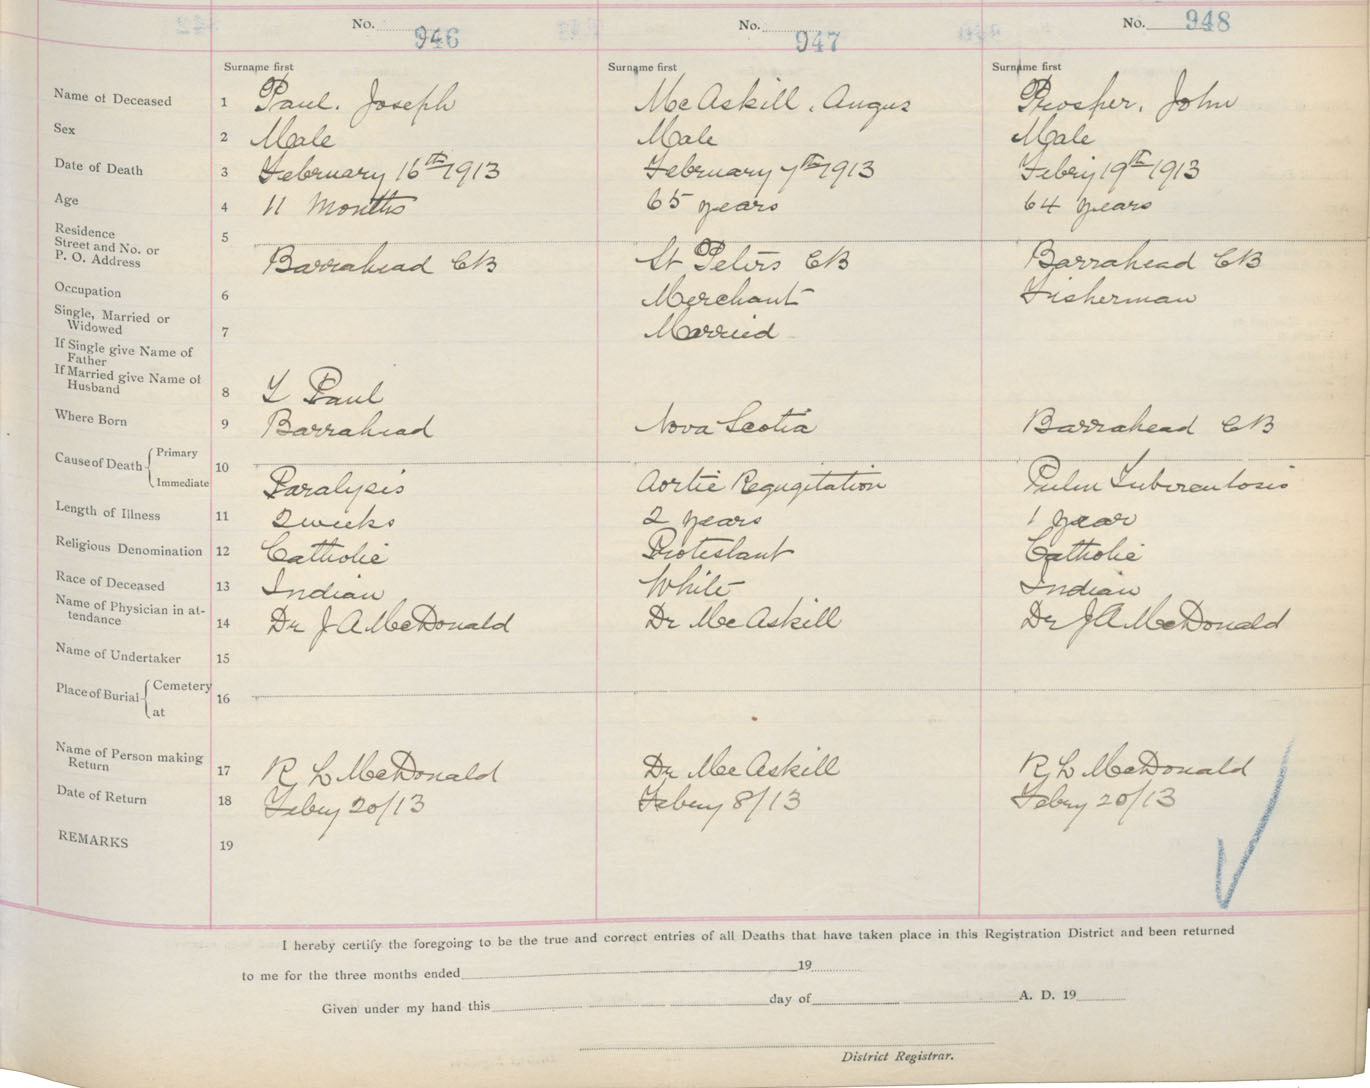 No. 946 No. 947 No. 948
Surname first Surname first Surname first
Name of Deceased 1 Paul. Joseph McAskill, Angus Prosper, John
Sex 2 Male Male Male
Date of Death 3 February 16th 1913 February 7th 1913 Febry 19th 1913
Age 4 11 Months 65 years 64 years
Residence 5
Street and No. or
P. O. Address Barrahead CB St Peters CB Barrahead CB
Occupation 6 Merchant Fisherman
Single, Married or
Widowed 7 Married
If Single give Name of
Father
If Married give Name of
Husband 8 Paul
Where Born 9 Barrahead Nova Scotia Barrahead CB
Cause of Death Primary
10
Immediate Paralysis Aortic Regugitation Pulm Tuberculosis
Length of Illness 11 2 weeks 2 years 1 year
Religious Denomination 12 Catholic Protestant Catholic
Race of Deceased 13 Indian White Indian
Name of Physician in at-
tendance 14 Dr J A McDonald Dr McAskill Dr J A McDonald
Name of Undertaker 15
Place of Burial Cemetery
16
at
Name of Person making
Return 17 R L McDonald Dr McAskill R L McDonald
Date of Return 18 Febry 20/13 Febry 8/13 Febry 20/13
REMARKS 19
I hereby certify the foregoing to be the true and correct entries of all Deaths that have taken place in this Registration District and been returned
to me for the three months ended 19
Given under my hand this day of A. D. 19
District Registrar.